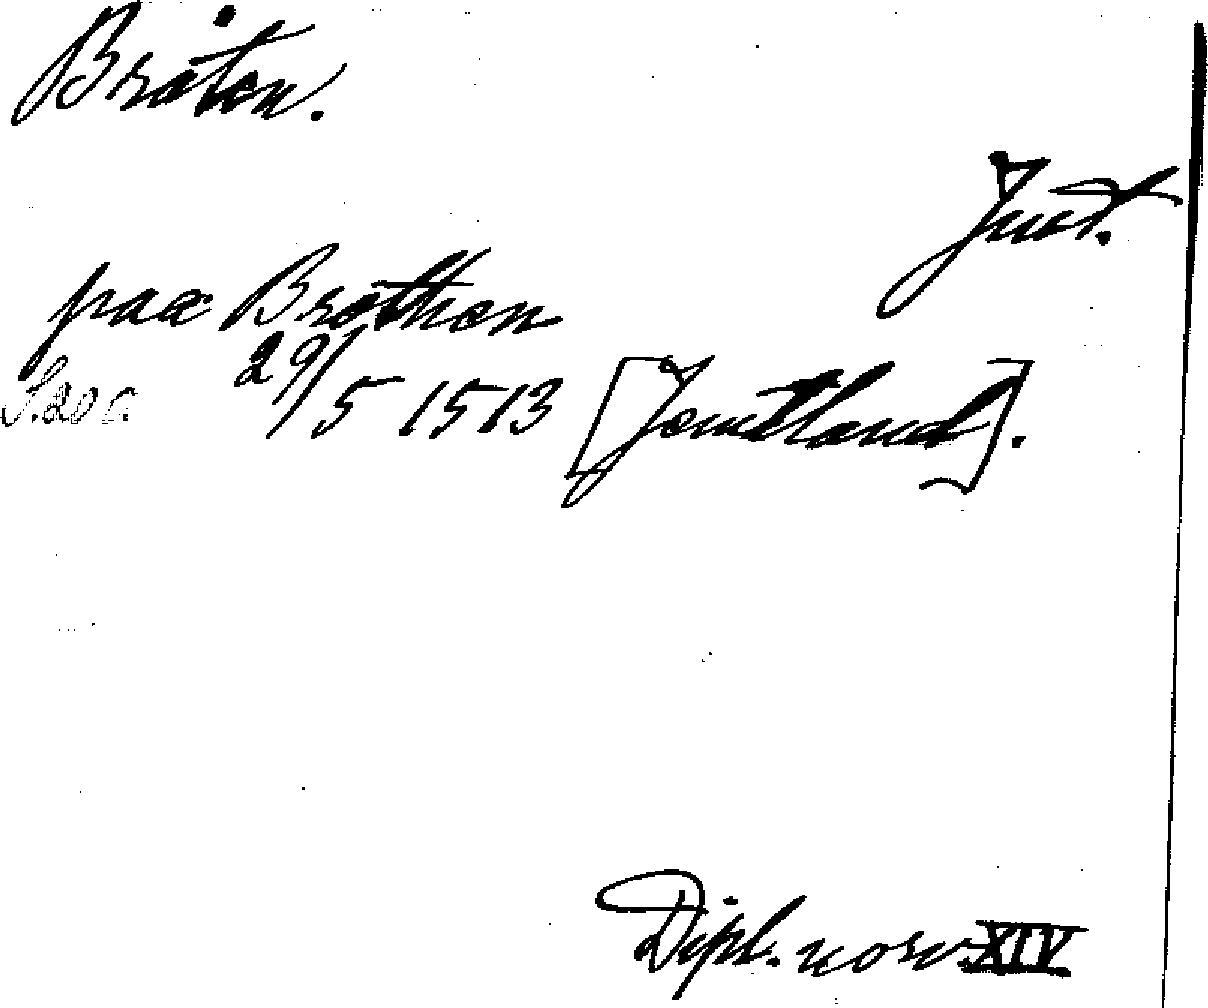 Bråten.
Jmt.
paa Bråthen
S. 200. 29/5 1513 [Jemtland].
Dipl. norv. XIV